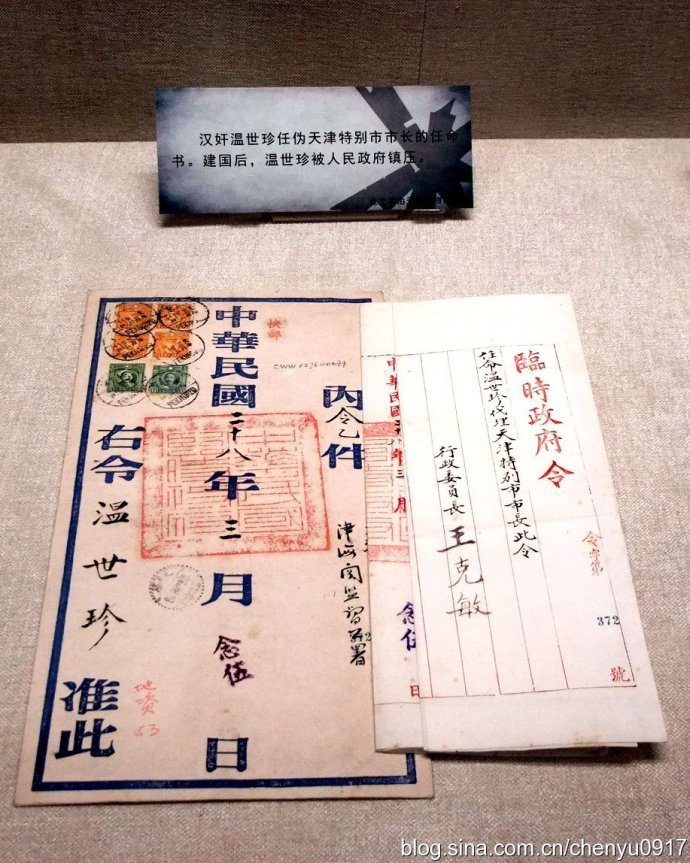 汉奸温世珍任伪天津特别市市长的任命
书。建国后，温世珍被人民政府镇压。
臨時政府令
令字第
372
號
任命溫世珍代理天津特別市市長此令
行政委員長 王克敏
中華民國二十八年三月
念伍
日
快郵
內令乙件
津海関監督署
中華民國二十八年三月念伍日
右令溫世珍准此
地资
53
blog.sina.com.cn/chenyu0917